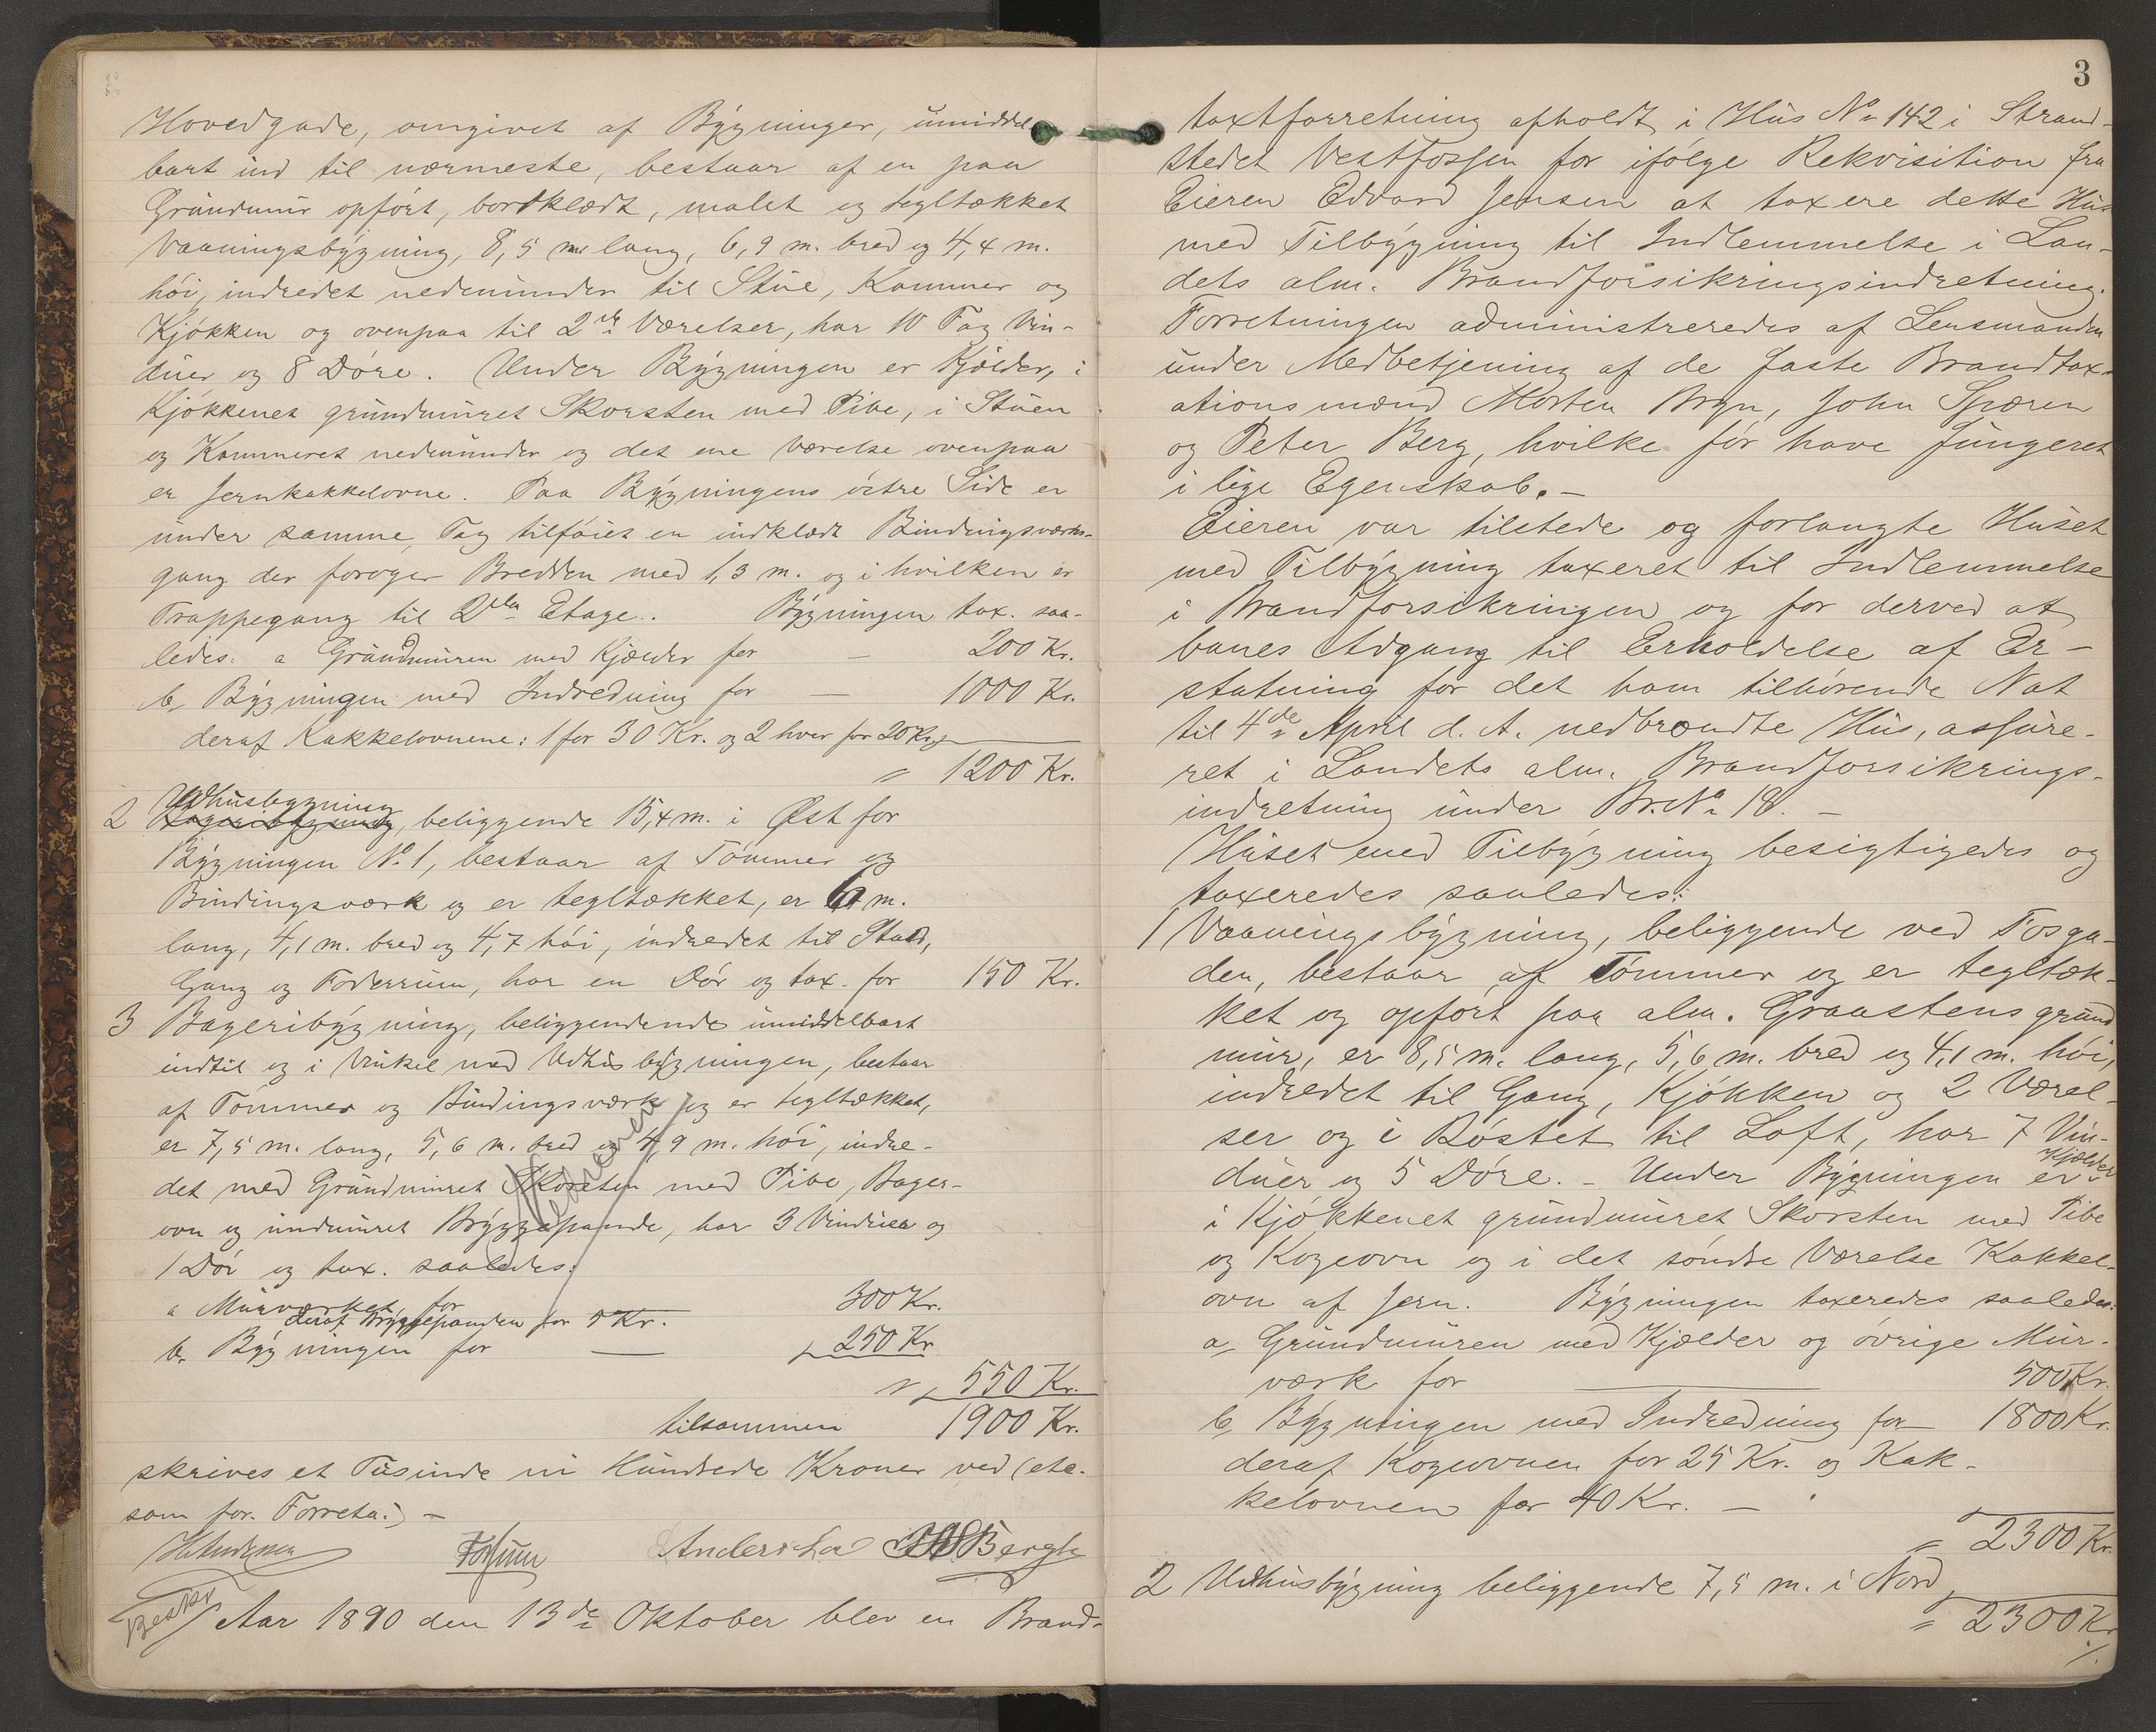 Hovedgade, omgivet af Bygninger, umiddel
bart ind til nærmeste, bestaar af en paa
Grundmur opført, bordklædt, malet og tegltækket
Vaaningsbygning, 8,5 m. lang, 6,9 m. bred og 4,4 m.
høi, indredet nedenunder til Stue, Kammer og
Kjøkken og ovenpaa til 2de Værelser, har 10 Fag Vin-
duer og 8 Døre. Under Bygningen er Kjælder, i
Kjøkkenet grundmuret Skorsten med Pibe, i Stuen
og Kammeret nedenunder og det ene Værelse ovenpaa
er Jernkakkelovne. Paa Bygningens østre Side er
under samme Tag tilføiet en indklædt Bindingsværks-
gang der forøger Bredden med 1,3 m. og i hvilken er
Trappegang til 2den Etage. Bygningen tax. saa-
ledes: a Grundmuren med Kjælder for — 200 Kr.
b, Bygningen med Indredning for — 1000 Kr.
deraf Kakkelovnene: 1 for 30 Kr. og 2 hver for 20 Kr.
= 1200 Kr.
Udhusbygning
2 Bageribygning, beliggende 15,4 m. i Øst for
Bygningen No 1, bestaar af Tømmer og
Bindingsværk og er tegltækket, er 6 m.
lang, 4,1 m. bred og 4,7 høi, indredet til Stald,
Gang og Foderrum, har en Dør og tax. for 150 Kr.
3 Bageribygning, beliggendende umiddelbart
indtil og i Vinkel med Udhusbygningen, bestaar
af Tømmer og Bindingsværk og er tegltækket,
er 7,5 m. lang, 5,6 m. bred og 4,9 m. høi, indre-
det med Grundmuret Skorsten med Pibe, Bager-
ovn og indmuret Bryggepande, har 3 Vinduer og
1 Dør og tax. saaledes:
a Murværket for 300 Kr.
deraf Bryggepanden for 5 Kr.
b. Bygningen for — 250 Kr
= 550 Kr.
tilsammen 1900 Kr.
skrives et Tusinde ni Hundrede Kroner ved (ete.
som for. Forretn:) —
H. Andersen Fossum Anders Lo Bergh
Beskr
Aar 1890 den 13de Oktober blev en Brand-
3
taxtforretning afholdt i Hus No 142 i Strand-
stedet Vestfossen for ifølge Rekvisition fra
Eieren Edvard Jensen at taxere dette Hus
med Tilbygning til Indlemmelse i Lan-
dets alm. Brandforsikringsindretning.
Forretningen administreredes af Lensmanden
under Medbetjening af de faste Brandtax-
ationsmænd Morten Bryn, John Spæren
og Peter Berg, hvilke før have fungeret
i lige Egenskab. —
Eieren var tilstede og forlangte Huset
med Tilbygning taxeret til Indlemmelse
i Brandforsikringen og for derved at
banes Adgang til Erholdelse af Er-
statning for det ham tilhørende Nat
til 4de April d. A. nedbrændte Hus, assure-
ret i Landets alm. Brandforsikrings-
indretning under Br. No 18. —
Huset med Tilbygning besigtigedes og
taxeredes saaledes:
1 Vaaningsbygning, beliggende ved Fosga-
den, bestaar af Tømmer og er tegltæk-
ket og opført paa alm. Graastensgrund
mur, er 8,5 m. lang, 5,6 m. bred og 4,1 m. høi,
indredet til Gang, Kjøkken og 2 Værel-
ser og i Røstet til Loft, har 7 Vin-
duer og 5 Døre. – Under Bygningen er Kjælder
i Kjøkkenet grundmuret Skorsten med Pibe
og Kogeovn og i det søndre Værelse Kakkel-
ovn af Jern. Bygningen taxeredes saaledes:
a, Grundmuren med Kjælder og øvrige Mur-
værk for — 500 Kr.
b, Bygningen med Indredning for 1800 Kr.
deraf Kogeovnen for 25 Kr. og Kak-
kelovnen for 40 Kr. —
= 2300 Kr.
2 Udhusbygning beliggende 7,5 m. i Nord,
= 2300 Kr